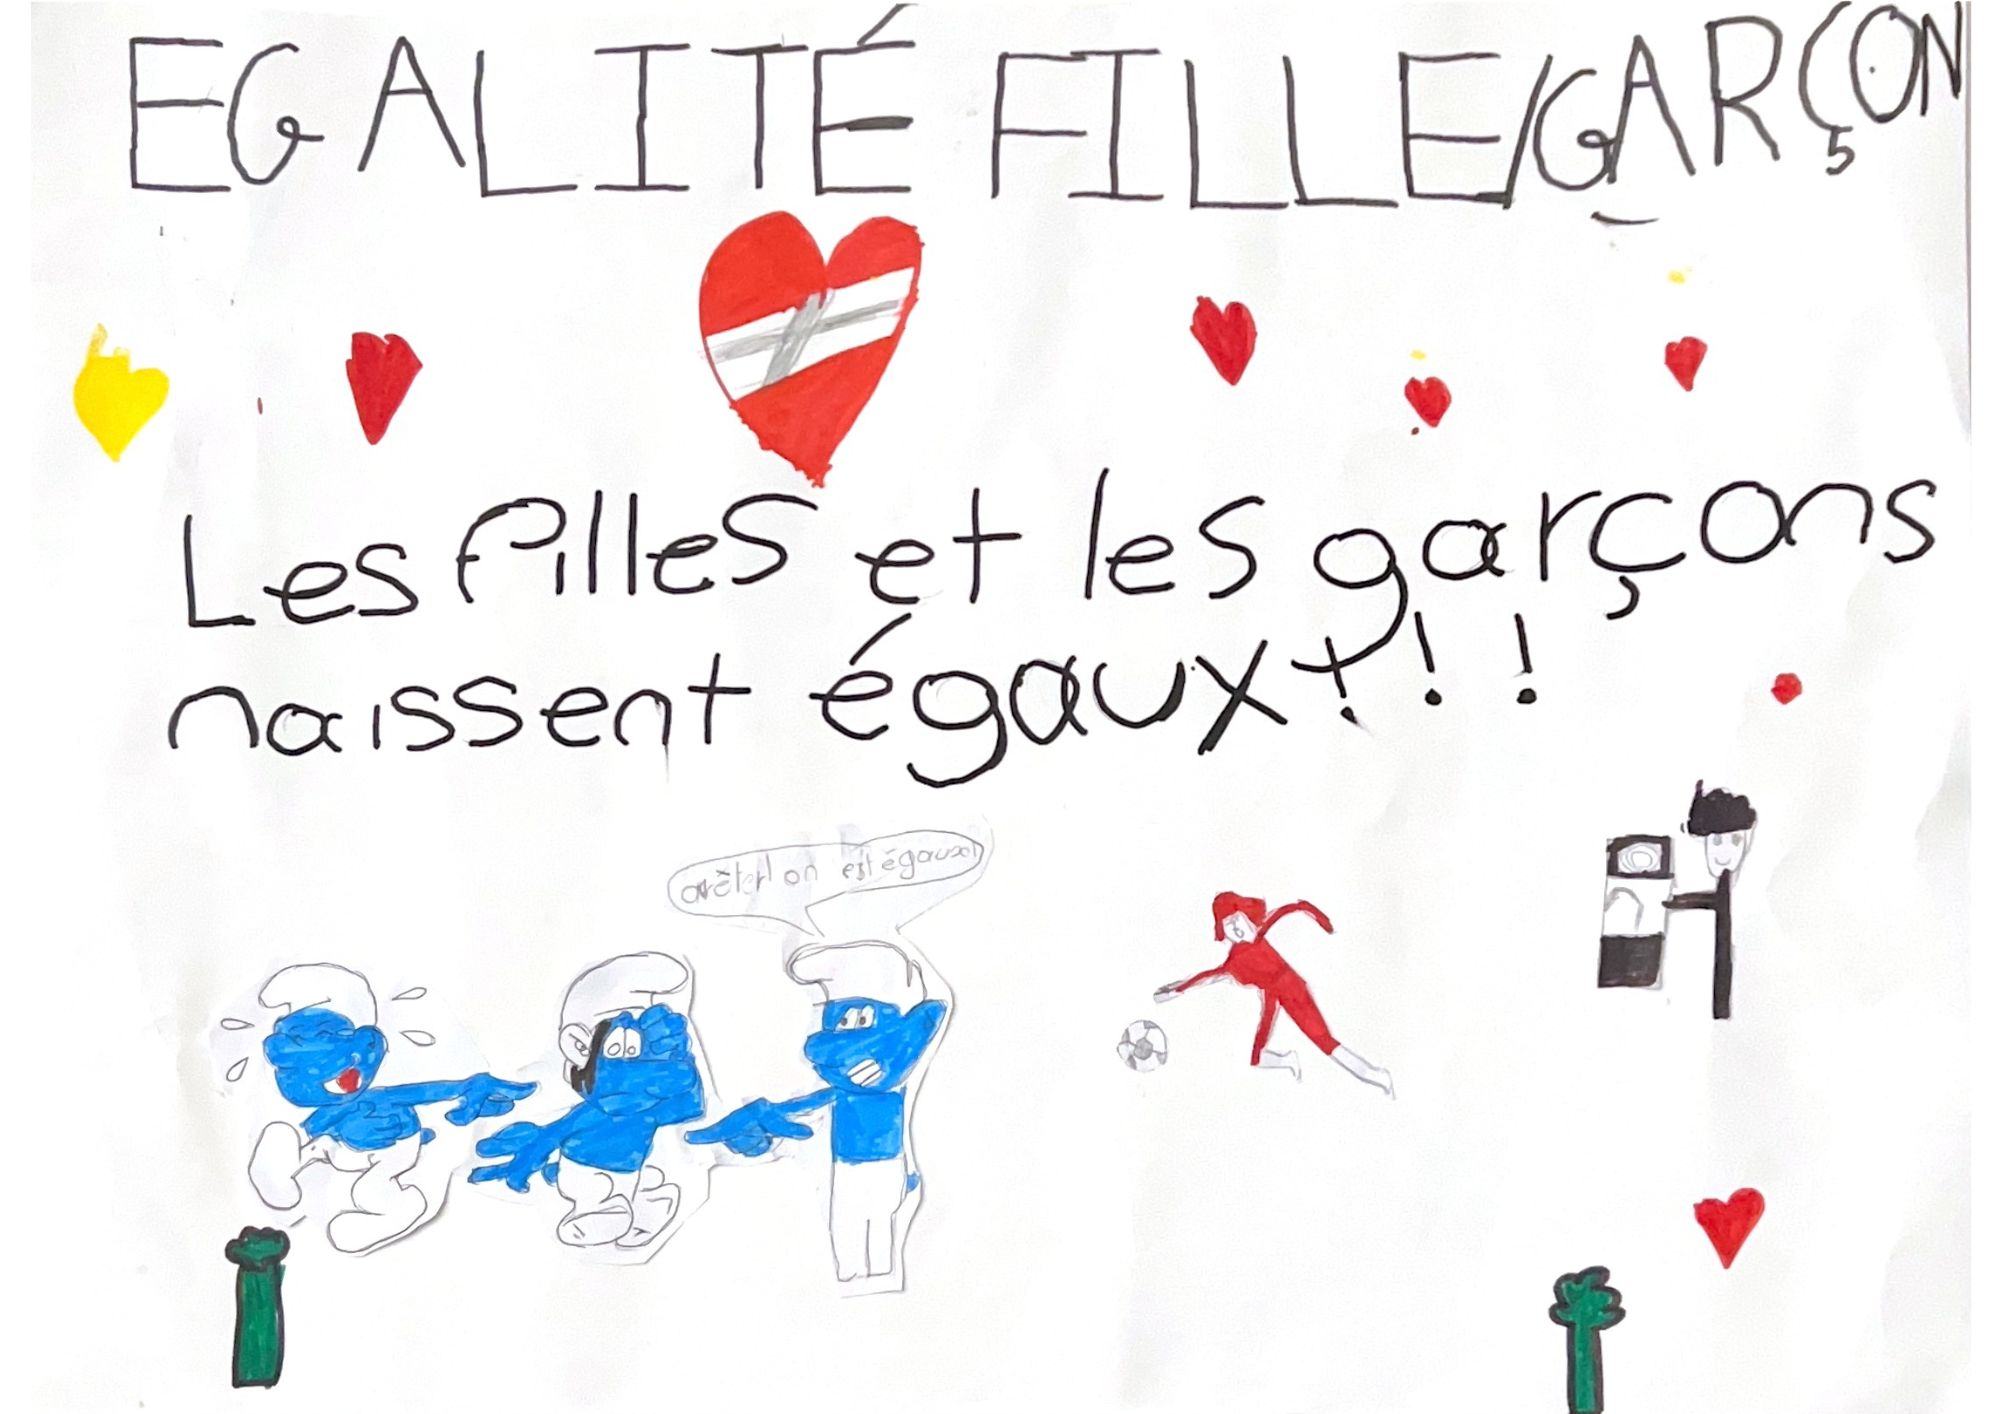 EGALITÉ FILLE/GARÇON
Les filles et les garçons
naissent égaux!!!
arêter! on est égaux!